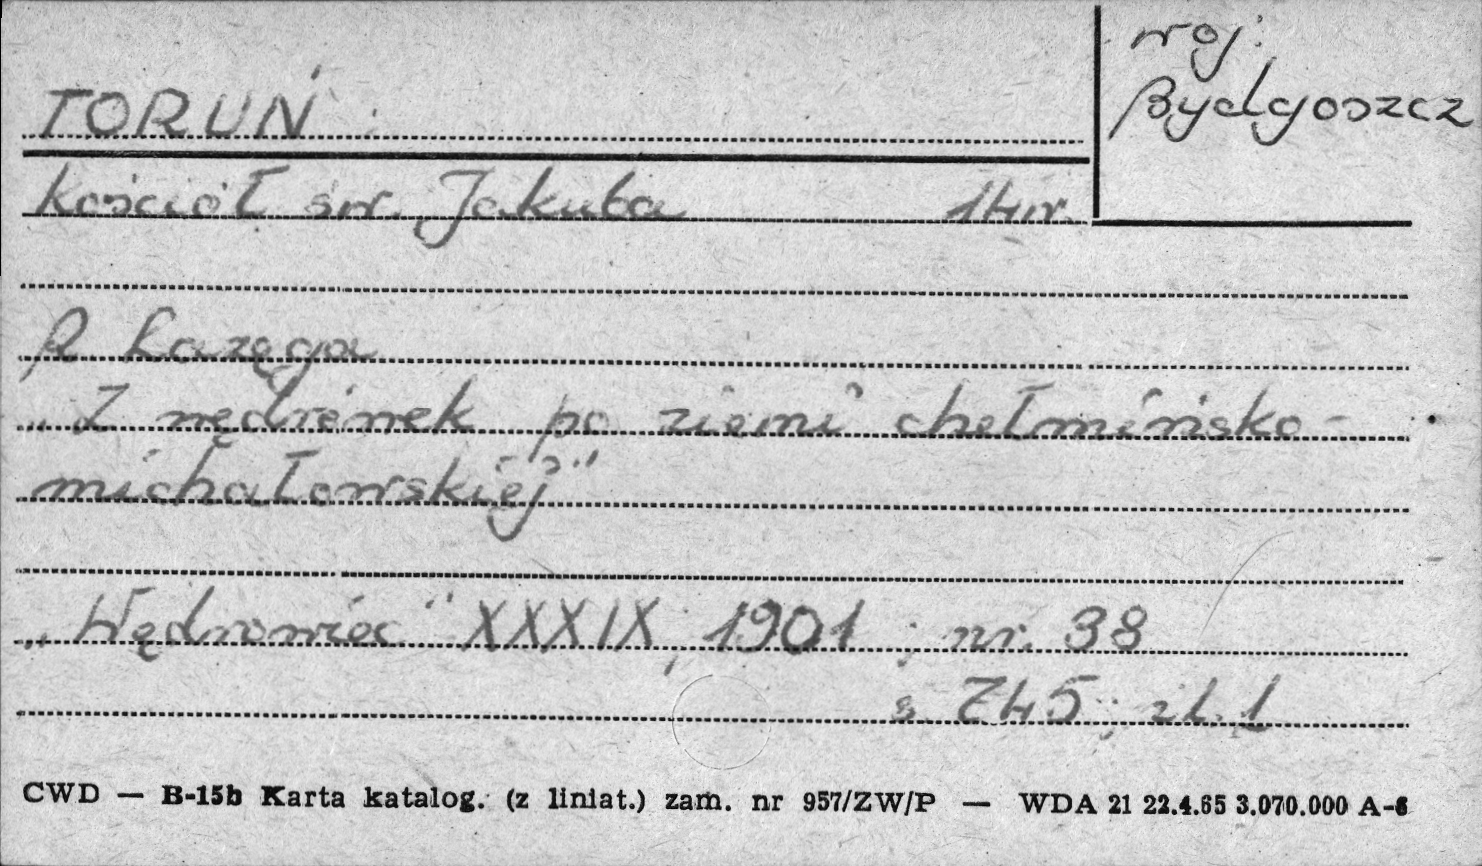 TORUŃ
woj.
Bydgoszcz
kościół św. Jakuba 14 w.
R Łazęga
„Z wędrówek po ziemi chełmińsko-
michałowskiej"
„Wędrowiec" XXXIX, 1901; nr. 38
s. 745; il. 1
CWD — B-15b Karta katalog. (z liniat.) zam. nr 957/ZW/P — WDA 21 22.4.65 3.070.000 A-6